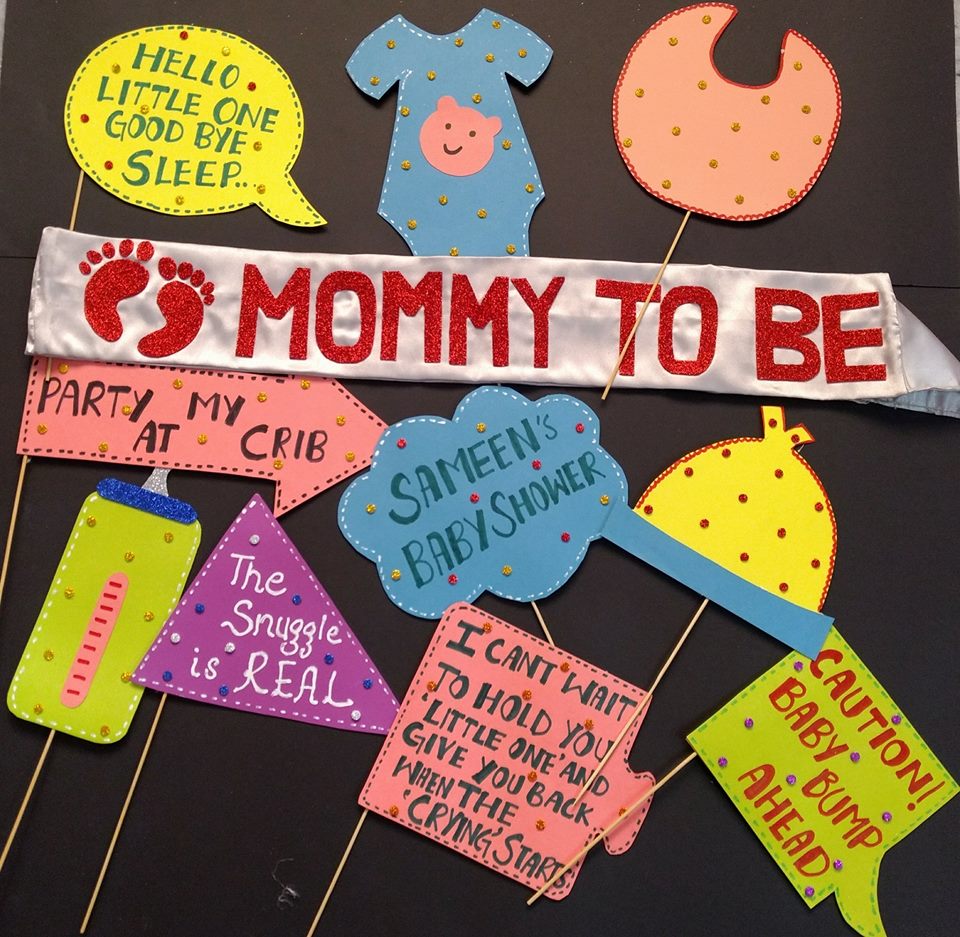 HELLO
LITTLE ONE
GOOD BYE
SLEEP..
MOMMY TO BE
PARTY MY
AT CRIB
SAMEEN'S
BABY SHOWER
The
Snuggle
is REAL
I CANT WAIT
TO HOLD YOU
'LITTLE ONE' AND
GIVE YOU BACK
WHEN THE
'CRYING' STARTS
CAUTION!
BABY BUMP
AHEAD